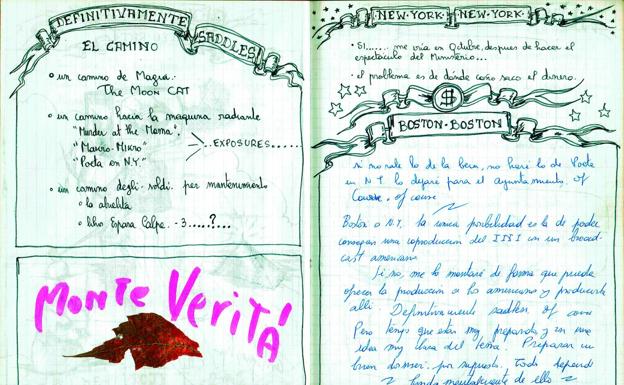 DEFINITIVAMENTE SADDLES!
EL CAMINO
• un camino de Magia..
The MOON CAT
• un camino hacia la maquina radiante
"Murder at the Moma",
"Macro-Mikro"
"Poeta en N.Y."
..EXPOSURES......
• un camino degli soldi per mantenimiento
• la abuelita
• libro Espasa Calpe. -3.....?...
MONTE VERITÁ
NEW-YORK NEW-YORK
• SI...... me iría en Octubre, despues de hacer el
espectaculo del Ministerio...
• el problema es de dónde coño saco el dinero.
$
BOSTON-BOSTON
si no sale lo de la beca, no haré lo de Poeta
en N.Y. lo dejaré para el ayuntamiento. Of
Course, of course
Boston o N.Y. la unica posibilidad es la de poder
conseguir una coproduccion del INI con un broad-
cast americano
Si so, me lo montaré de forma que pueda
ofrecer la produccion a los americanos y producirla
alli. Definitivamente saddles. Of course
Pero tengo que estar muy preparado y con una
idea muy clara del tema. Preparar un
buen dossier, por supuesto. Todo depende
fundamentalmente de ello